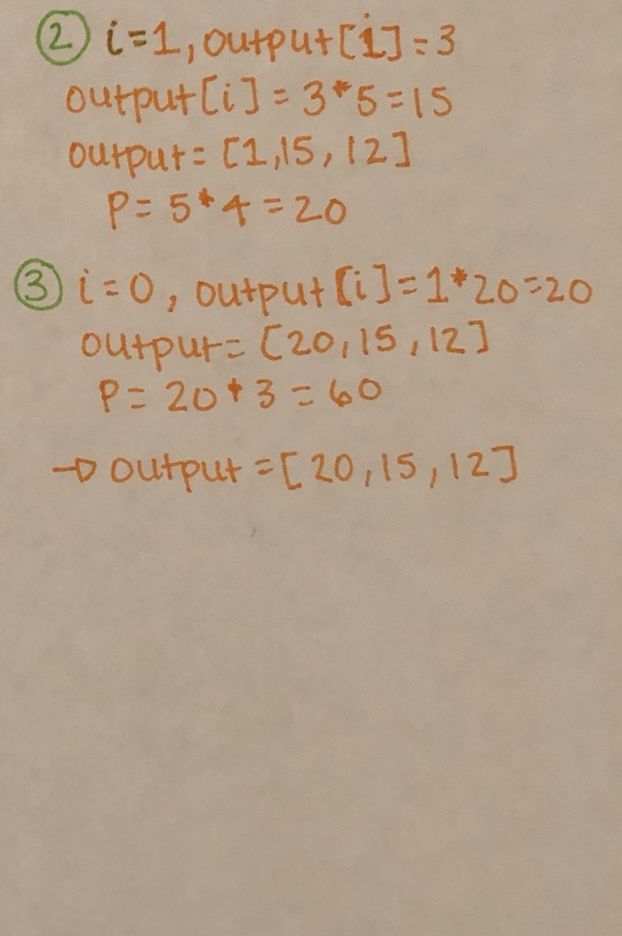 2 i=1, output[i]=3
output[i] = 3*5=15
output= [1,15, 12]
P= 5*4=20
3 i=0, output[i]=1*20=20
output= [20,15,12]
P= 20*3=60
→ output=[20,15,12]